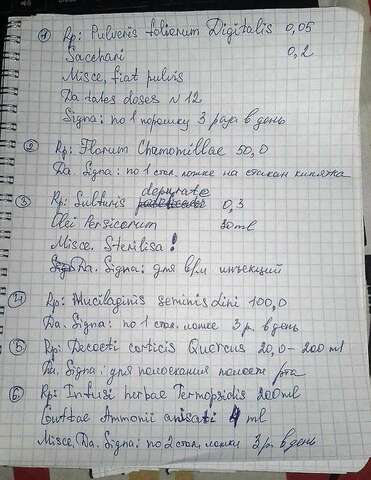 1 Rp: Pulveris foliorum Digitalis 0,05
Sacchari 0,2
Misce, fiat pulvis
Da tales doses N 12
Signa: по 1 порошку 3 раза в день
2 Rp: Florum Chamomillae 50,0
Da. Signa: по 1 стол. ложке на стакан кипятка
depurate
3 Rp: Sulfuris 0,3
Olei Persicorum 30 ml
Misce. Sterilisa!
Da. Signa: для в/м инъекций
4 Rp: Mucilaginis seminis Lini 100,0
Da. Signa: по 1 стол. ложке 3 р. в день
5 Rp: Decocti corticis Quercus 20,0 - 200 ml
Da. Signa: для полоскания полости рта
6 Rp: Infusi herbae Termopsidis 200 ml
Guttae Ammonii anisati 4 ml
Misce, Da. Signa: по 2 стол. ложки 3 р. в день